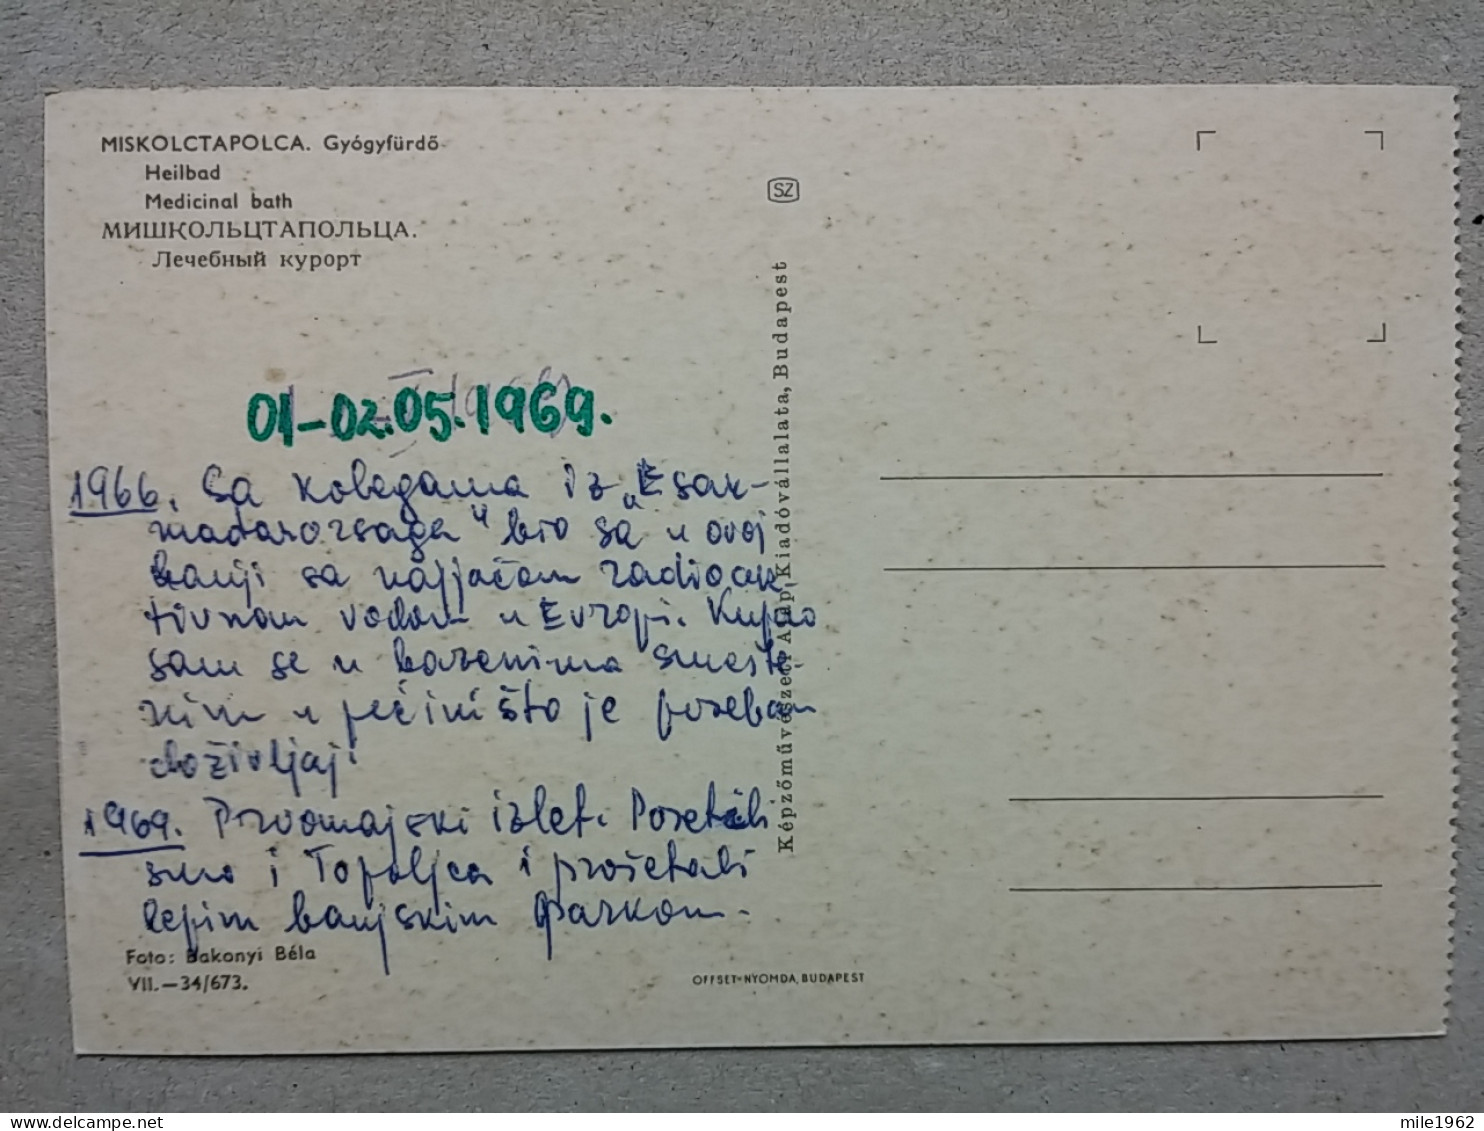 MISKOLCTAPOLCA. Gyógyfürdő
Heilbad
Medicinal bath
МИШКОЛЬЦТАПОЛЬЦА.
Лечебный курорт
SZ
01-02.05.1969.
1966. Sa kolegama iz „Esak-
madarorsaga" bio sa u ovoj
banji sa najjačom radioak-
tivnom vodom u Evropi. Kupao
sam se u bazenima smešte-
nim u pećini što je poseban
doživljaj.
1969. Prvomajski izlet. Posetili
smo i Topoljca i prošetali
lepim banjskim parkom.
Foto: Bakonyi Béla
VII.—34/673.
Képzőművészeti Alap Kiadóvállalata, Budapest
OFFSET-NYOMDA, BUDAPEST
mile1962